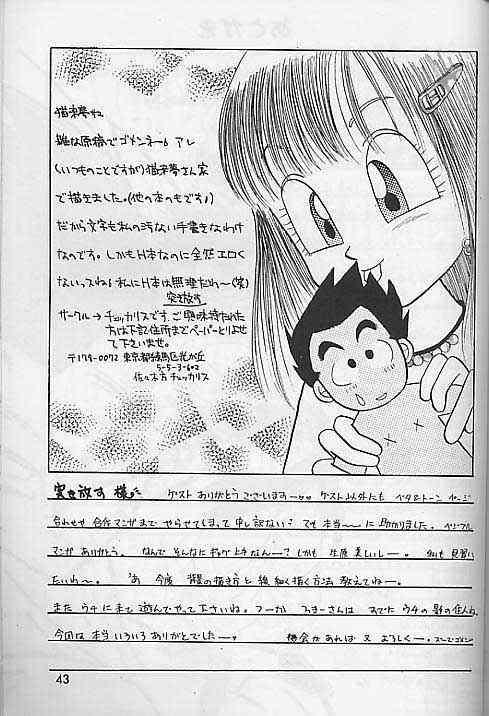 猫来夢ね
雑な原稿でゴメンネ。アレ
(いつものことですが)猫来夢さん家
で描きました。(他の本のもです♪)
だから文字も私の汚ない手書きなわけ
なのです。しかもH本なのに全然エロく
ないってね!私にH本は無理だわ〜(笑)
突き放す
サークル→チェッカリスです。ご興味持たれた
方は下記住所までペーパーとりよせ
て下さいませ。
〒179-0072 東京都練馬区光が丘
5-5-3-602
佐々木方チェッカリス
突き放す 様
ゲスト ありがとう ございます ゲスト以外にも ベタ&トーン
合わせや 合作マンガまで やらせてしまって 申し訳ない? でも 本当〜に 助かりました。
マンガ ありがとう。 なんで そんなに ギャグ 上手なん〜? しかも 生原 美しいしー。 見習い
たいわ〜。 あ 今度 背景の描き方と 線 細く描く方法 教えてねー。
また ウチに来て 遊んでやって 下さいね。 さんは ウチの 住人ね。
今回は 本当 いろいろ ありがとでしたー。 機会があれば 又 よろしくー。
43